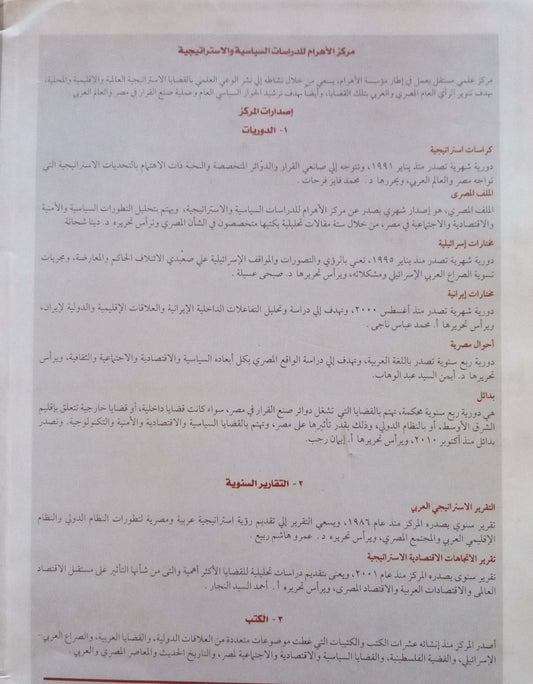 مركز الأهرام للدراسات السياسية والاستراتيجية
مركز علمي مستقل يعمل في إطار مؤسسة الأهرام، يسعي من خلال نشاطه إلي نشر الوعي العلمي بالقضايا الاستراتيجية العالمية والإقليمية والمحلية،
بهدف تنوير الرأي العام المصري والعربي بتلك القضايا، وأيضاً بهدف ترشيد الحوار السياسي العام وعملية صنع القرار في مصر والعالم العربي.
إصدارات المركز
١- الدوريات
كراسات استراتيجية
دورية شهرية تصدر منذ يناير ١٩٩١، وتتوجه إلي صانعي القرار والدوائر المتخصصة والنخبة ذات الاهتمام بالتحديات الاستراتيجية التي
تواجه مصر والعالم العربي، ويحررها د. محمد فايز فرحات.
الملف المصرى
الملف المصري، هو إصدار شهري يصدر عن مركز الأهرام للدراسات السياسية والاستراتيجية، ويهتم بتحليل التطورات السياسية والأمنية
والاقتصادية والاجتماعية في مصر، من خلال ستة مقالات تحليلية يكتبها متخصصون في الشأن المصري وترأس تحريره د. دينا شحاتة
مختارات إسرائيلية
دورية شهرية تصدر منذ يناير ١٩٩٥، تعني بالرؤي والتصورات والمواقف الإسرائيلية علي صعيدي الائتلاف الحاكم والمعارضة، ومجريات
تسوية الصراع العربي الإسرائيلي ومشكلاته، ويرأس تحريرها د. صبحى عسيلة .
مختارات إيرانية
دورية شهرية تصدر منذ أغسطس ٢٠٠٠، وتهدف إلي دراسة وتحليل التفاعلات الداخلية الإيرانية والعلاقات الإقليمية والدولية لإيران،
ويرأس تحريرها أ. محمد عباس ناجى .
أحوال مصرية
دورية ربع سنوية تصدر باللغة العربية، وتهدف إلي دراسة الواقع المصري بكل أبعاده السياسية والاقتصادية والاجتماعية والثقافية، ويرأس
تحريرها د. أيمن السيد عبد الوهاب.
بدائل
هي دورية ربع سنوية محكمة، تهتم بالقضايا التي تشغل دوائر صنع القرار في مصر، سواء كانت قضايا داخلية، أو قضايا خارجية تتعلق بإقليم
الشرق الأوسط، أو بالنظام الدولي، وذلك بقدر تأثيرها على مصر، وتهتم بالقضايا السياسية والاقتصادية والأمنية والتكنولوجية. وتصدر
بدائل منذ أكتوبر ٢٠١٠، ويرأس تحريرها أ. إيمان رجب.
٢- التقارير السنوية
التقرير الاستراتيجي العربي
تقرير سنوي يصدره المركز منذ عام ١٩٨٦، ويسعي التقرير إلي تقديم رؤية استراتيجية عربية ومصرية لتطورات النظام الدولي والنظام
الإقليمي العربي والمجتمع المصري، ويرأس تحريره د. عمرو هاشم ربيع .
تقرير الاتجاهات الاقتصادية الاستراتيجية
تقرير سنوى يصدره المركز منذ عام ٢٠٠١، ويعنى بتقديم دراسات تحليلية للقضايا الأكثر أهمية والتى من شأنها التأثير على مستقبل الاقتصاد
العالمى والاقتصادات العربية والاقتصاد المصرى، ويرأس تحريره أ. أحمد السيد النجار .
٣- الكتب
أصدر المركز منذ إنشائه عشرات الكتب والكتيبات التي غطت موضوعات متعددة من العلاقات الدولية، والقضايا العربية، والصراع العربي-
الإسرائيلي، والقضية الفلسطينية، والقضايا السياسية والاقتصادية والاجتماعية لمصر، والتاريخ الحديث والمعاصر المصري والعربي